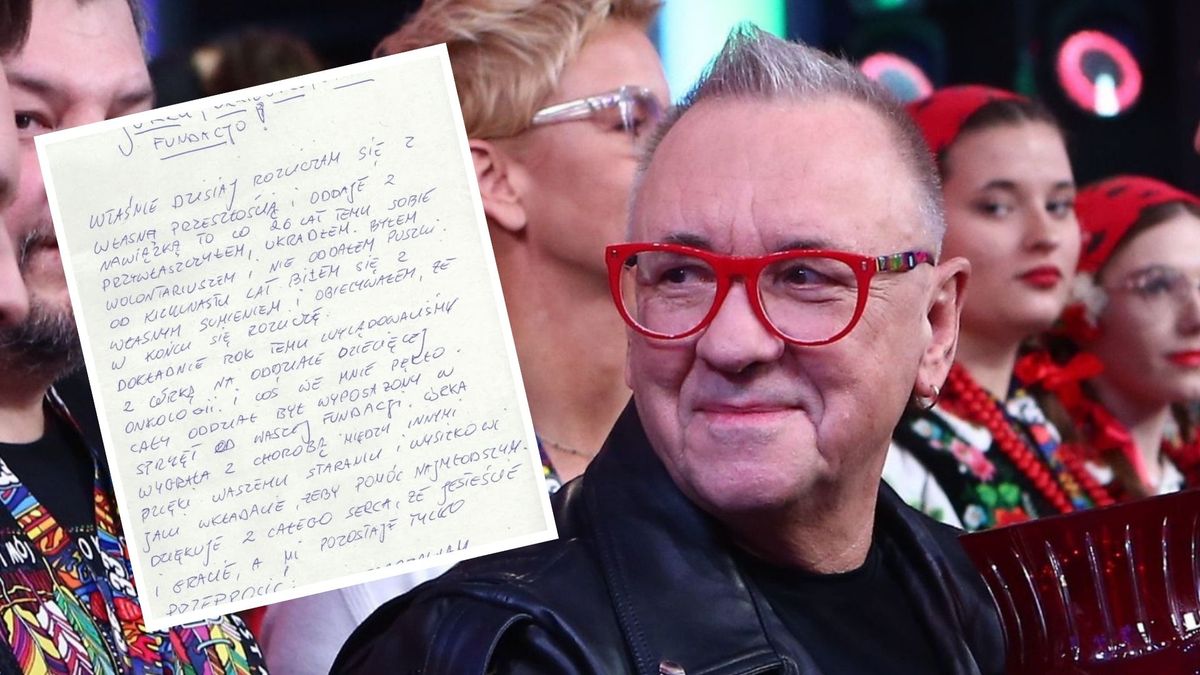 FUNDACJO!
WŁAŚNIE DZISIAJ ROZLICZAM SIĘ Z
WŁASNĄ PRZESZŁOŚCIĄ I ODDAJĘ Z
NAWIĄZKĄ TO CO 26 LAT TEMU SOBIE
PRZYWŁASZCZYŁEM, UKRADŁEM. BYŁEM
WOLONTARIUSZEM I NIE ODDAŁEM PUSZKI.
OD KILKUNASTU LAT BIŁEM SIĘ Z
WŁASNYM SUMIENIEM I OBIECYWAŁEM, ŻE
W KOŃCU SIĘ ROZLICZĘ.
DOKŁADNIE ROK TEMU WYLĄDOWALIŚMY
Z CÓRKĄ NA ODDZIALE DZIECIĘCEJ
ONKOLOGII I COŚ WE MNIE PĘKŁO.
CAŁY ODDZIAŁ BYŁ WYPOSAŻONY W
SPRZĘT OD WASZEJ FUNDACJI. CÓRKA
WYGRAŁA Z CHOROBĄ MIĘDZY INNYMI
DZIĘKI WASZEMU STARANIU I WYSIŁKOWI
JAKI WKŁADACIE, ŻEBY POMÓC NAJMŁODSZYM.
DZIĘKUJĘ Z CAŁEGO SERCA, ŻE JESTEŚCIE
I GRACIE, A MI POZOSTAJE TYLKO
PRZEPROSIĆ.